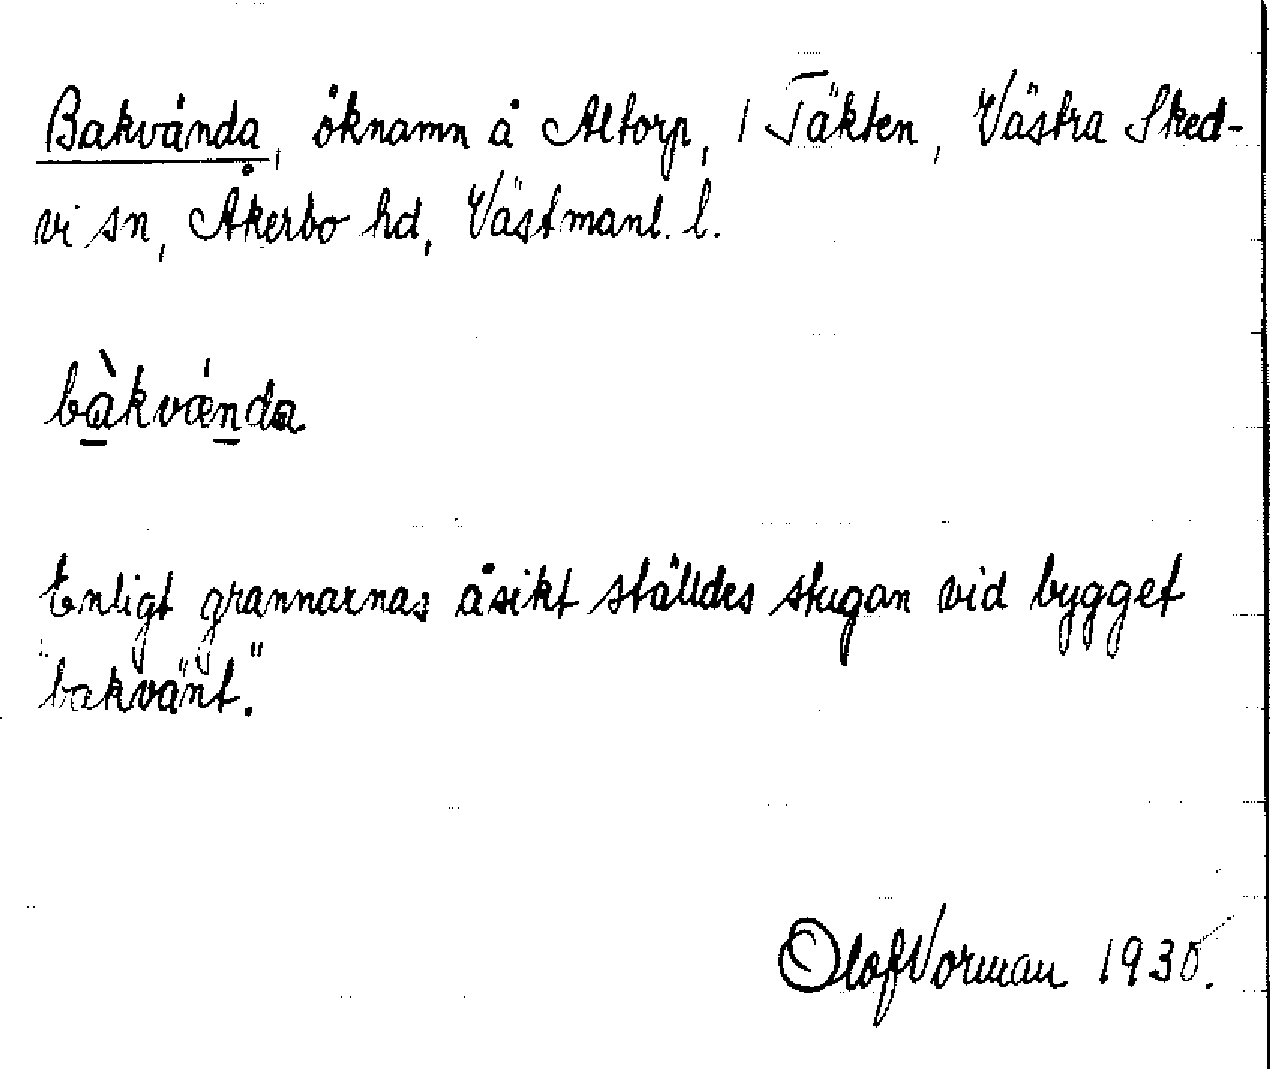 Bakvända, öknamn å Altorp, 1 Täkten, Västra Sked-
vi sn, Åkerbo hd, Västmanl. l.
bàkvǽnda
Enligt grannarnas åsikt ställdes stugan vid bygget
"bakvänt."
Olof Vorman 1930.